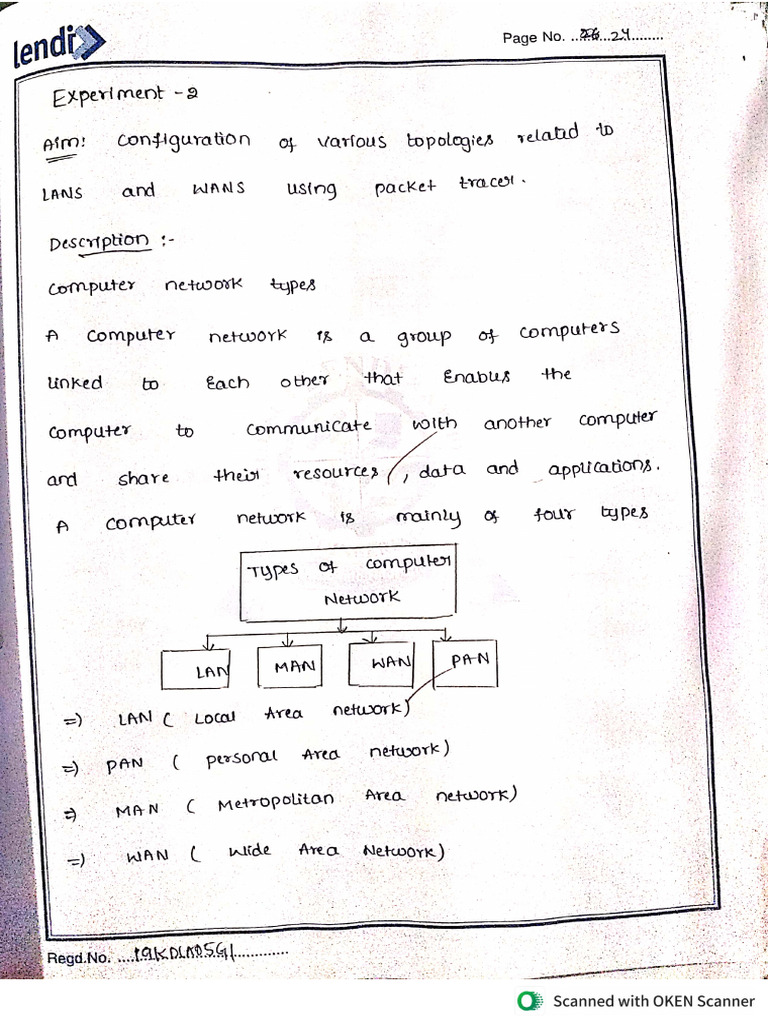 lendi
Page No. ..26...24........
Experiment - 2
Aim: Configuration of various topologies related to
LANS and WANS using packet tracer.
Description :-
Computer network types
A computer network is a group of computers
linked to Each other that Enables the
computer to communicate with another computer
and share their resources, data and applications.
A computer network is mainly of four types
Types of computer
Network
LAN MAN WAN PAN
=) LAN ( Local Area network)
=) PAN ( personal Area network)
=) MAN ( Metropolitan Area network)
=) WAN ( Wide Area Network)
Regd.No. ....19KD1A05G1............
Scanned with OKEN Scanner